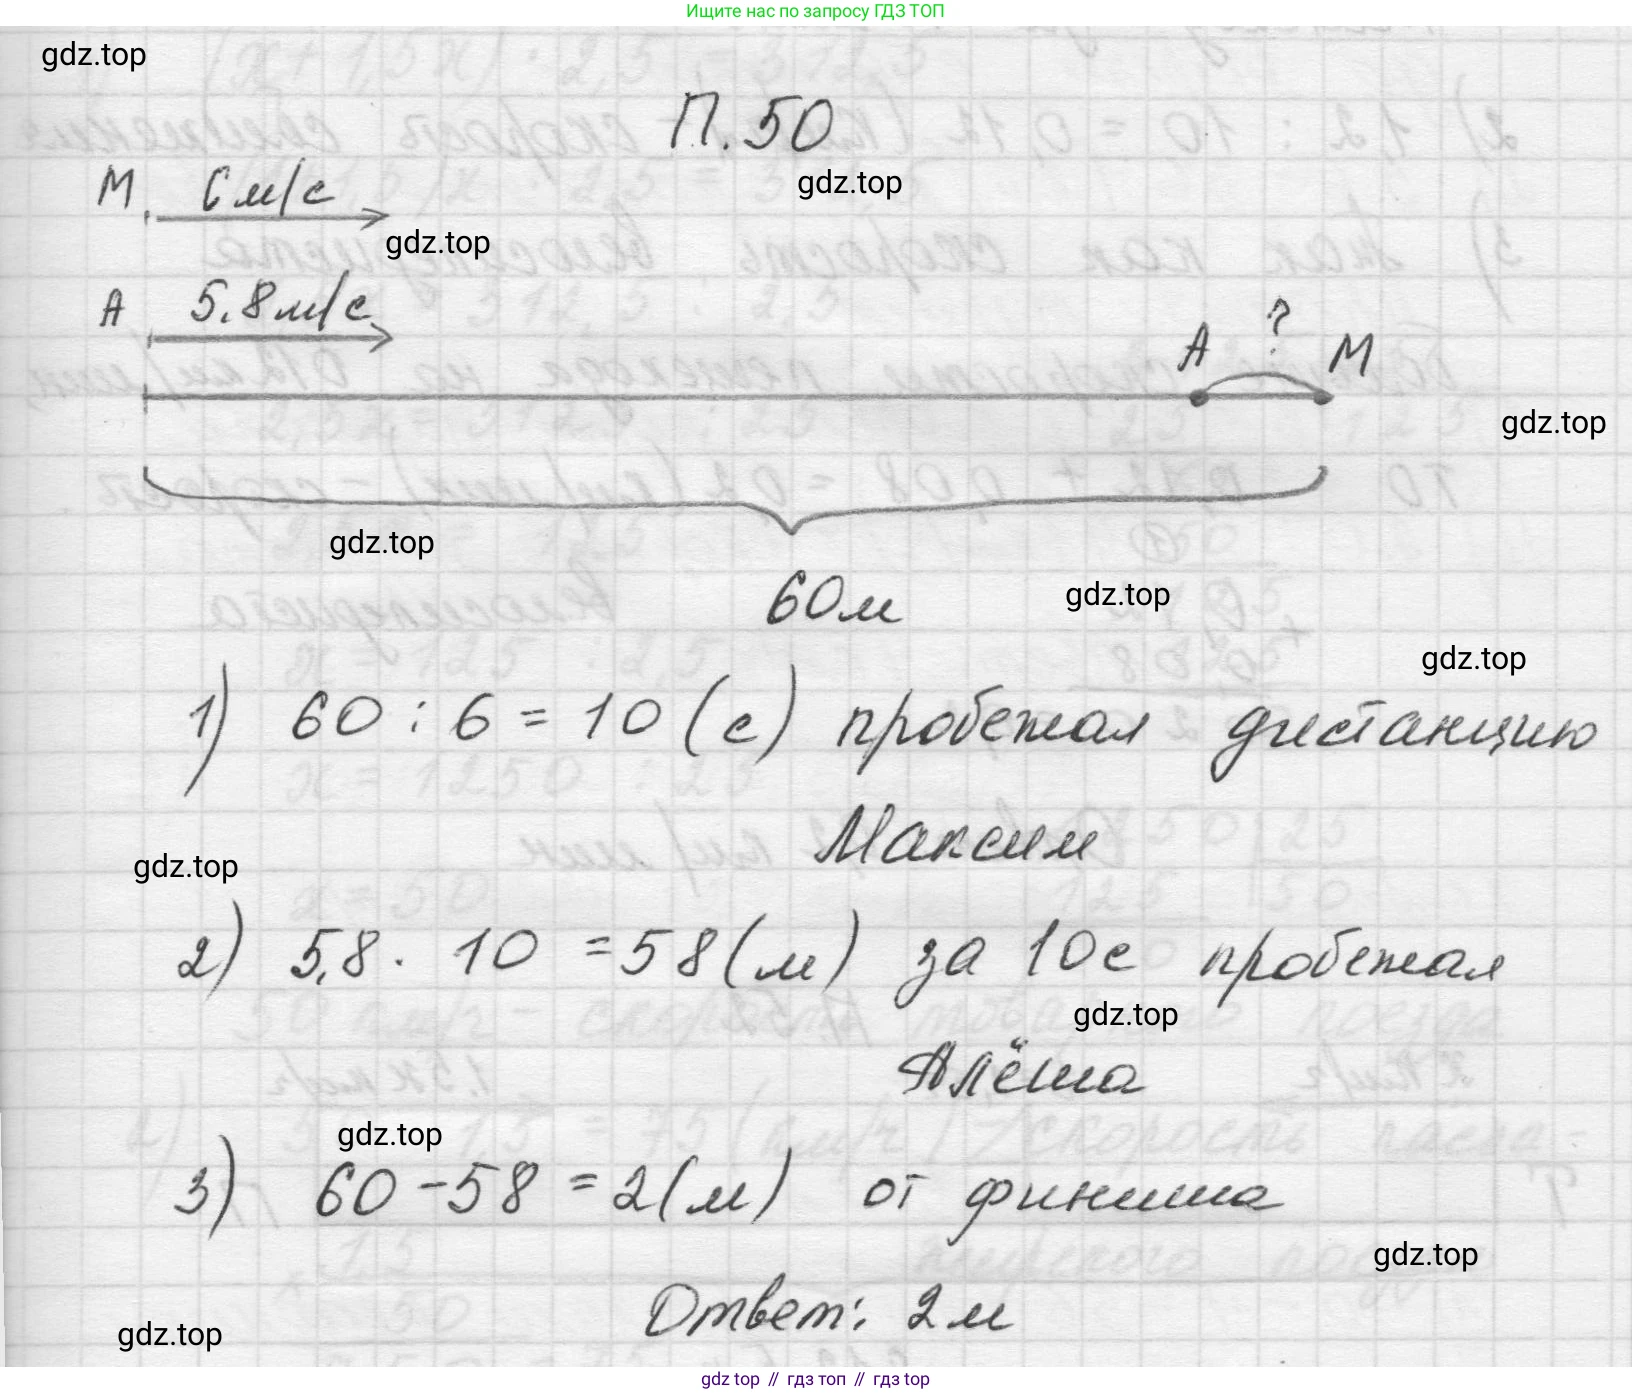 Ищите нас по запросу ГДЗ ТОП
gdz.top
П.50
gdz.top
М 6 м/с
gdz.top
А 5,8 м/с
А ? М
gdz.top
gdz.top
60м
gdz.top
gdz.top
1) 60 : 6 = 10 (с) пробежал дистанцию
Максим
gdz.top
2) 5,8 · 10 = 58 (м) за 10с пробежал
gdz.top
Алёша
gdz.top
3) 60 - 58 = 2 (м) от финиша
gdz.top
Ответ: 2 м
gdz.top
gdz top // гдз топ // гдз top